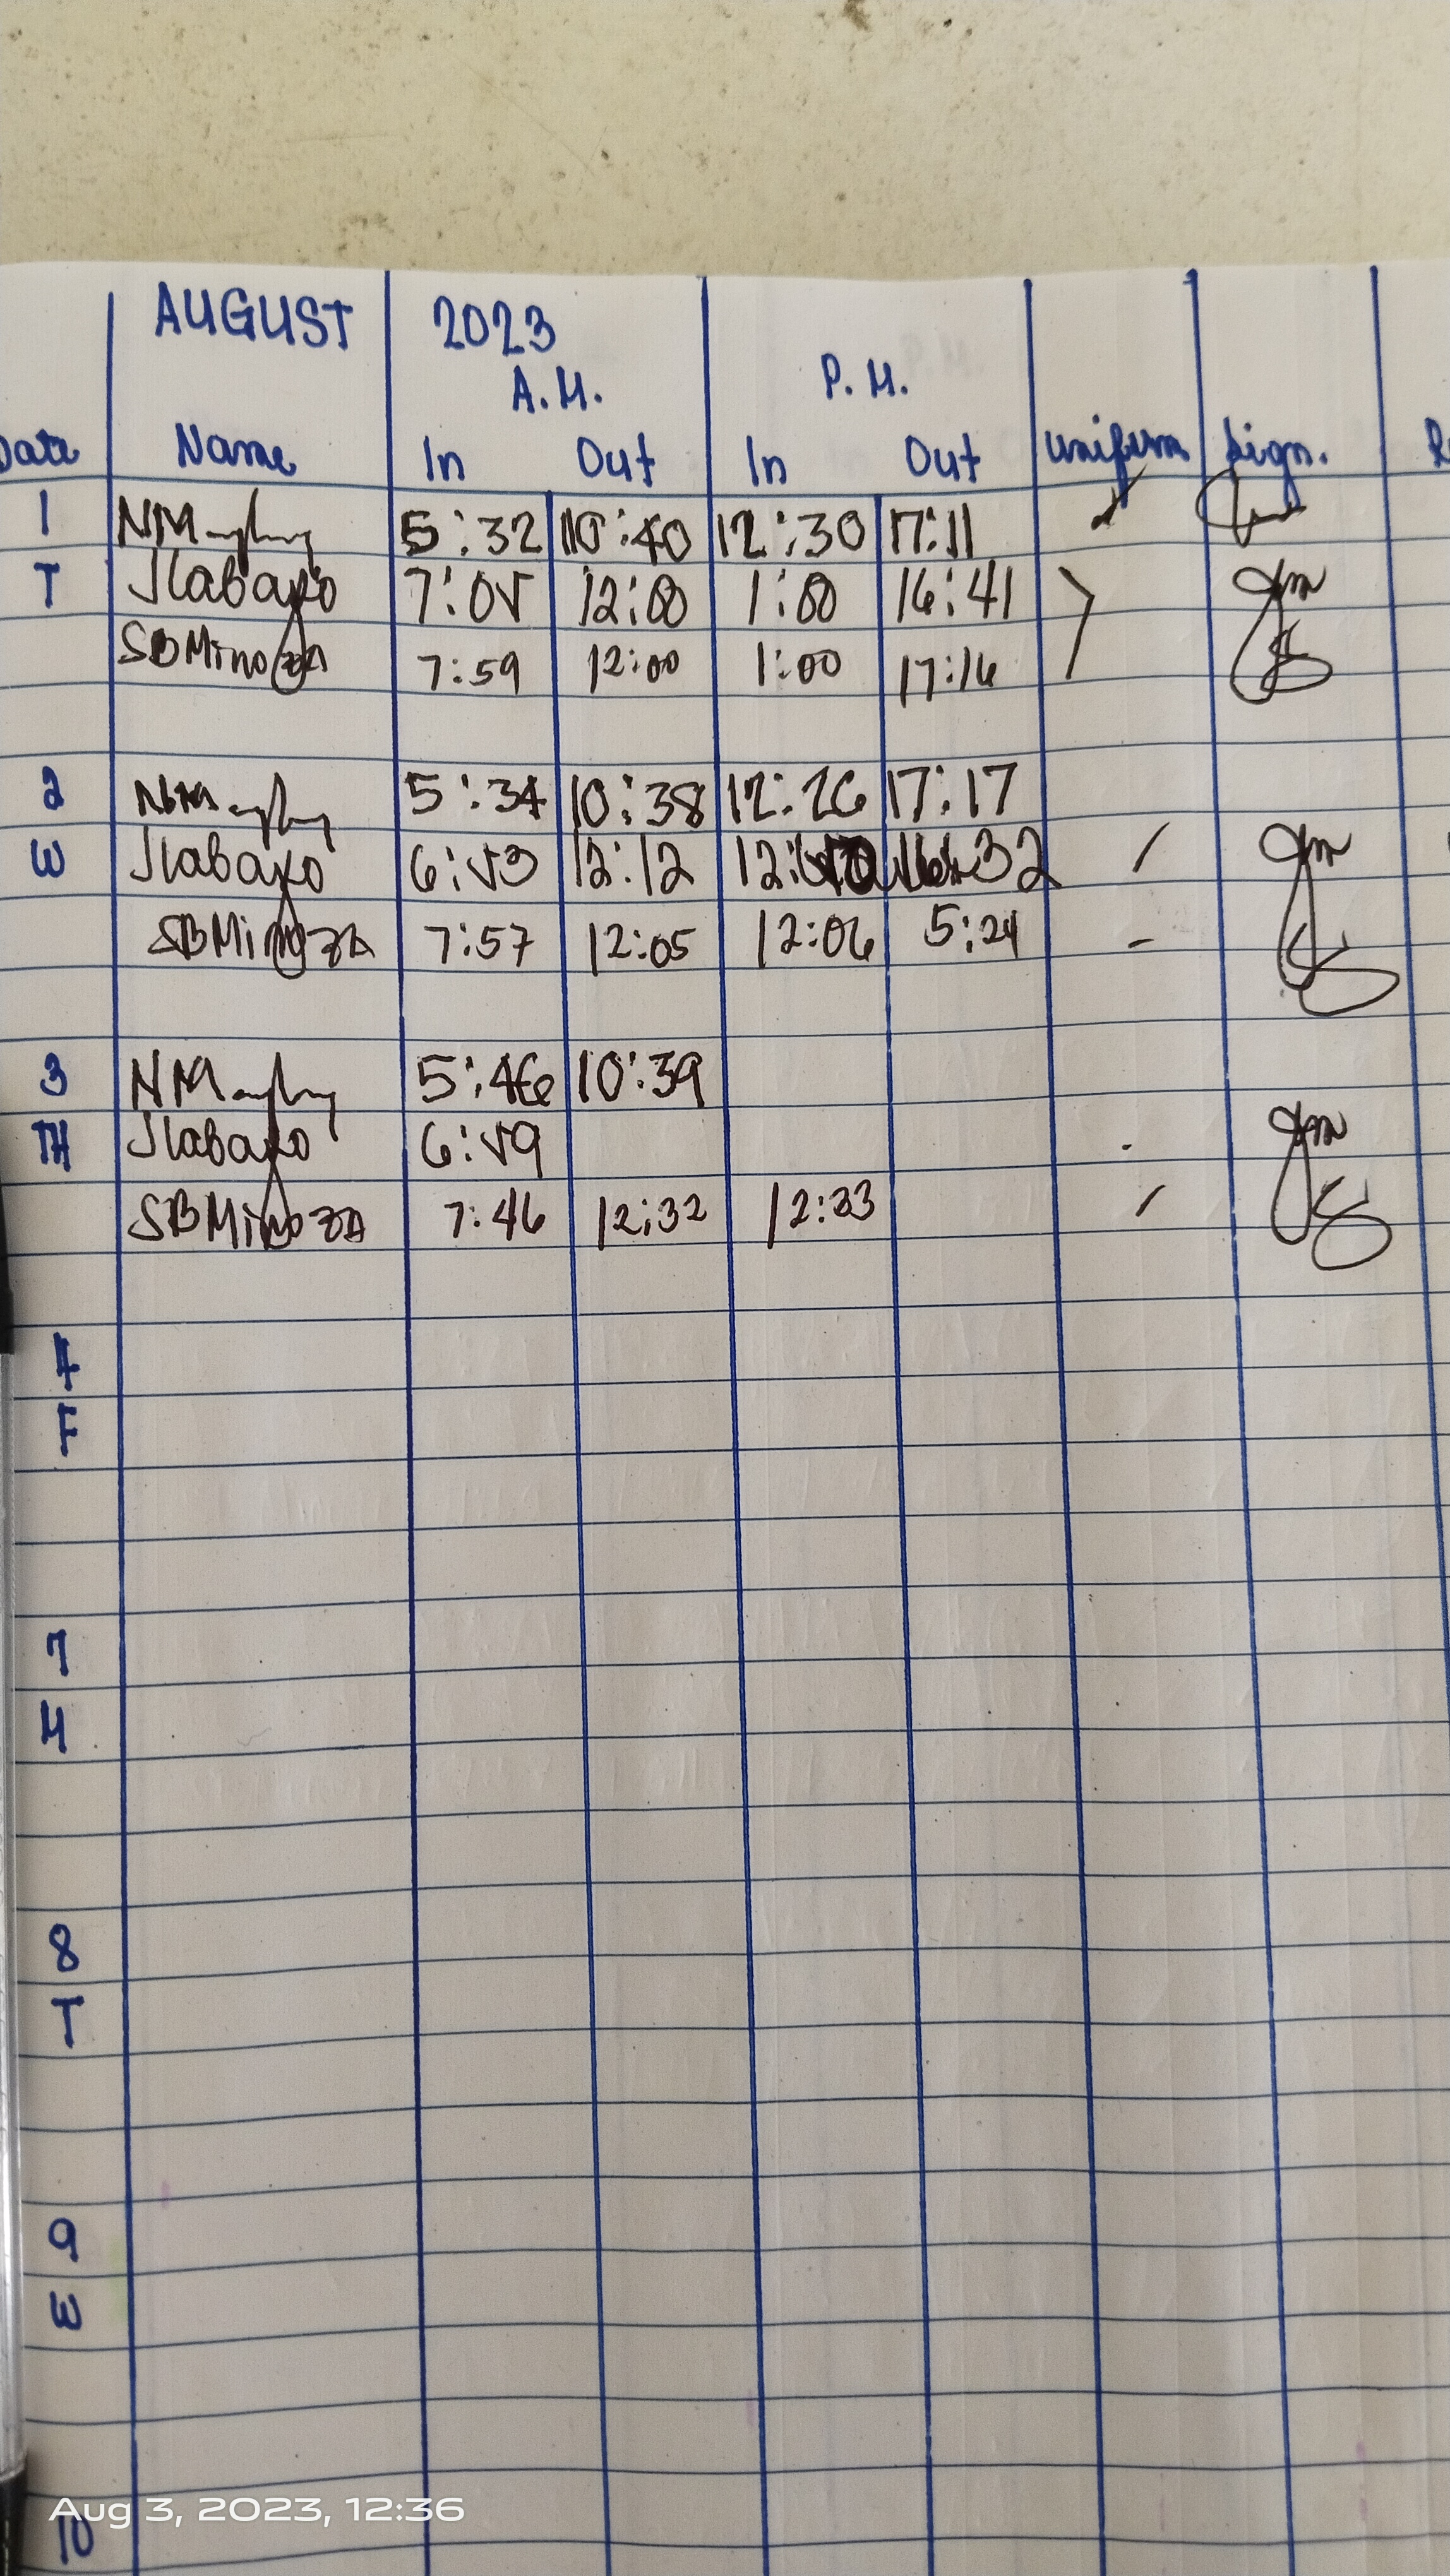 AUGUST 2023
A.M. P.M.
Date Name In Out In Out Uniform Sign.
1 5:32 10:40 12:30 17:11
T Jlabayo 7:05 12:00 1:00 16:41
SBMinoza 7:59 12:00 1:00 17:16
2 5:34 10:38 12:26 17:17
W Jlabayo 6:53 12:12
SBMinoza 7:57 12:05 12:06 5:24
3 5:46 10:39
TH Jlabayo 6:59
SBMinoza 7:46 12:32 12:33
4
F
7
M
8
T
9
W
Aug 3, 2023, 12:36
10